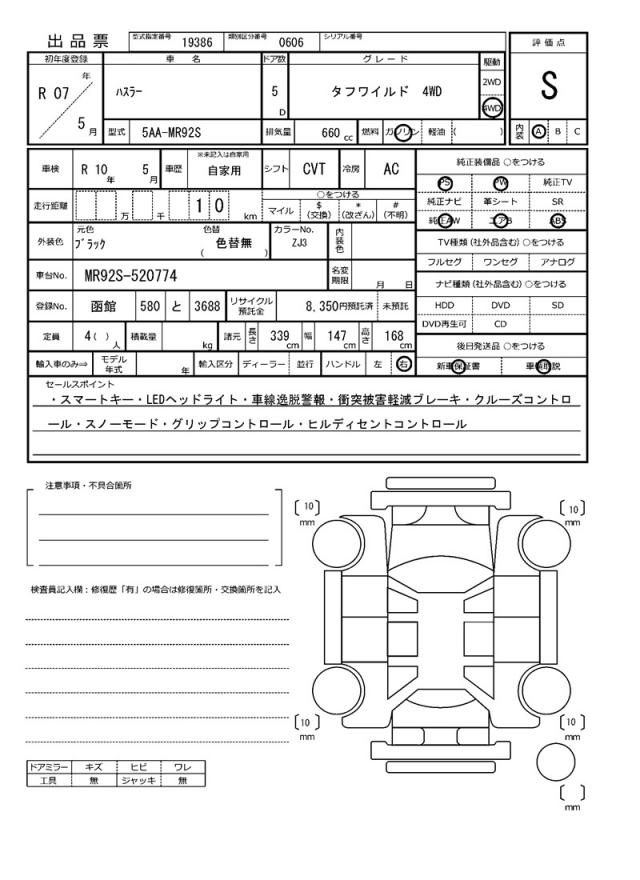 出品票 型式指定番号 19386 類別区分番号 0606 シリアル番号
評価点
S
内装 A B C
初年度登録 車名 ドア数 グレード 駆動
R 07 年 5 月 ハスラー 5 D タフワイルド 4WD 2WD 4WD
型式 5AA-MR92S 排気量 660 cc 燃料 ガソリン 軽油 ( )
車検 R 10 年 5 月 車歴 ※未記入は自家用 自家用 シフト CVT 冷房 AC
走行距離 万 千 1 0 km ○をつける
マイル $ (交換) * (改ざん) # (不明)
外装色 元色 ブラック 色替 色替無 ( ) カラーNo. ZJ3 内装色
車台No. MR92S-520774 名変期限 月 日
登録No. 函館 580 と 3688 リサイクル預託金 8,350円預託済 未預託
定員 4( ) 人 積載量 kg 諸元 長さ 339 cm 幅 147 cm 高さ 168 cm
輸入車のみ⇒ モデル年式 年 輸入区分 ディーラー 並行 ハンドル 左 右
純正装備品 ○をつける
PS PW 純正TV
純正ナビ 革シート SR
純正AW エアB ABS
TV種類 (社外品含む) ○をつける
フルセグ ワンセグ アナログ
ナビ種類 (社外品含む) ○をつける
HDD DVD SD
DVD再生可 CD
後日発送品 ○をつける
新車保証書 車輌取説
セールスポイント
・スマートキー・LEDヘッドライト・車線逸脱警報・衝突被害軽減ブレーキ・クルーズコントロ
ール・スノーモード・グリップコントロール・ヒルディセントコントロール
注意事項・不具合箇所
検査員記入欄：修復歴「有」の場合は修復箇所・交換箇所を記入
ドアミラー キズ ヒビ ワレ
工具 無 ジャッキ 無
〔10〕 mm
〔10〕 mm
〔10〕 mm
〔10〕 mm
〔 〕 mm